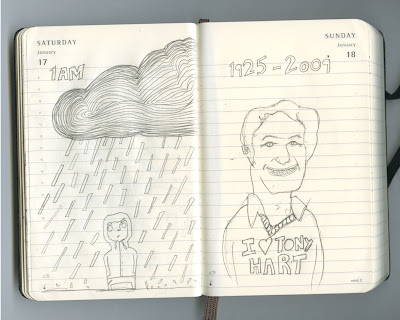 SATURDAY
January
17
1AM
SUNDAY
January
18
1925-2009
I ♥ TONY
HART